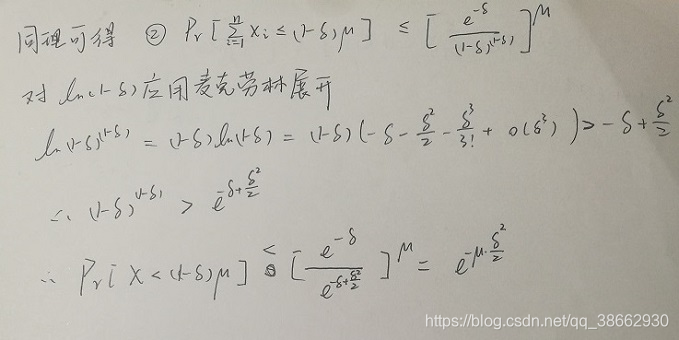 同理可得 ② Pr[∑_{i=1}^{n} Xi ≤ (1-δ)μ] ≤ [e^{-δ}/(1-δ)^{(1-δ)}]^μ
对 ln(1-δ) 应用麦克劳林展开
ln(1-δ)^{(1-δ)} = (1-δ)ln(1-δ) = (1-δ)(-δ - δ²/2 - δ³/3! + o(δ³)) > -δ + δ²/2
∴ (1-δ)^{(1-δ)} > e^{-δ+δ²/2}
∴ Pr[X < (1-δ)μ] < [e^{-δ}/e^{-δ+δ²/2}]^μ = e^{-μ·δ²/2}
https://blog.csdn.net/qq_38662930